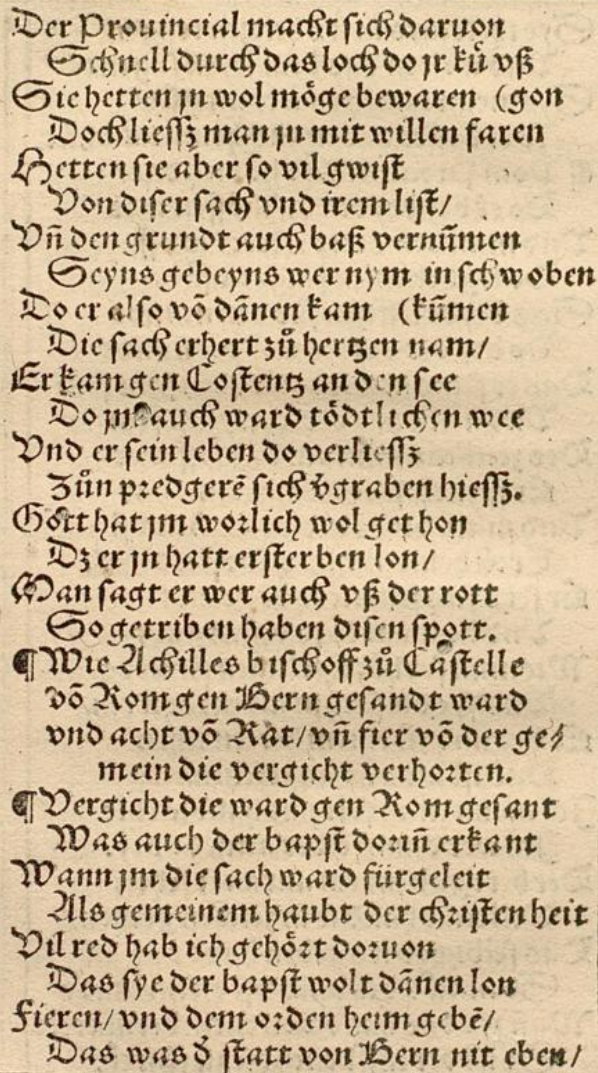 Der Prouincial macht sich daruon
Schnell durch das loch do jr kü vß
Sie hetten jn wol möge bewaren (gon
Doch liessz man jn mit willen faren
Hetten sie aber so vil gwist
Von diser sach vnd irem list/
Vñ den grundt auch baß vernūmen
Seyns gebeyns wer nym in schwoben
Do er also vō dānen kam (kūmen
Die sach erhert zů hertzen nam/
Er kam gen Costentz an den see
Do jm auch ward tödtlichen wee
Vnd er sein leben do verliessz
Zůn predgerē sich v̄graben hiessz.
Gott hat jm worlich wol gethon
Dz er jn hatt ersterben lon/
Man sagt er wer auch vß der rott
So getriben haben disen spott.
¶ Wie Achilles bischoff zů Castelle
vō Rom gen Bern gesandt ward
vnd acht vō Rat/vñ fier vō der ge⸗
mein die vergicht verhorten.
¶ Vergicht die ward gen Rom gesant
Was auch der bapst dorin̄ erkant
Wann jm die sach ward fürgeleit
Als gemeinem haubt der christenheit
Vil red hab ich gehört doruon
Das sye der bapst wolt dānen lon
Fieren/ vnd dem orden heim gebē/
Das was d̄ statt von Bern nit eben/